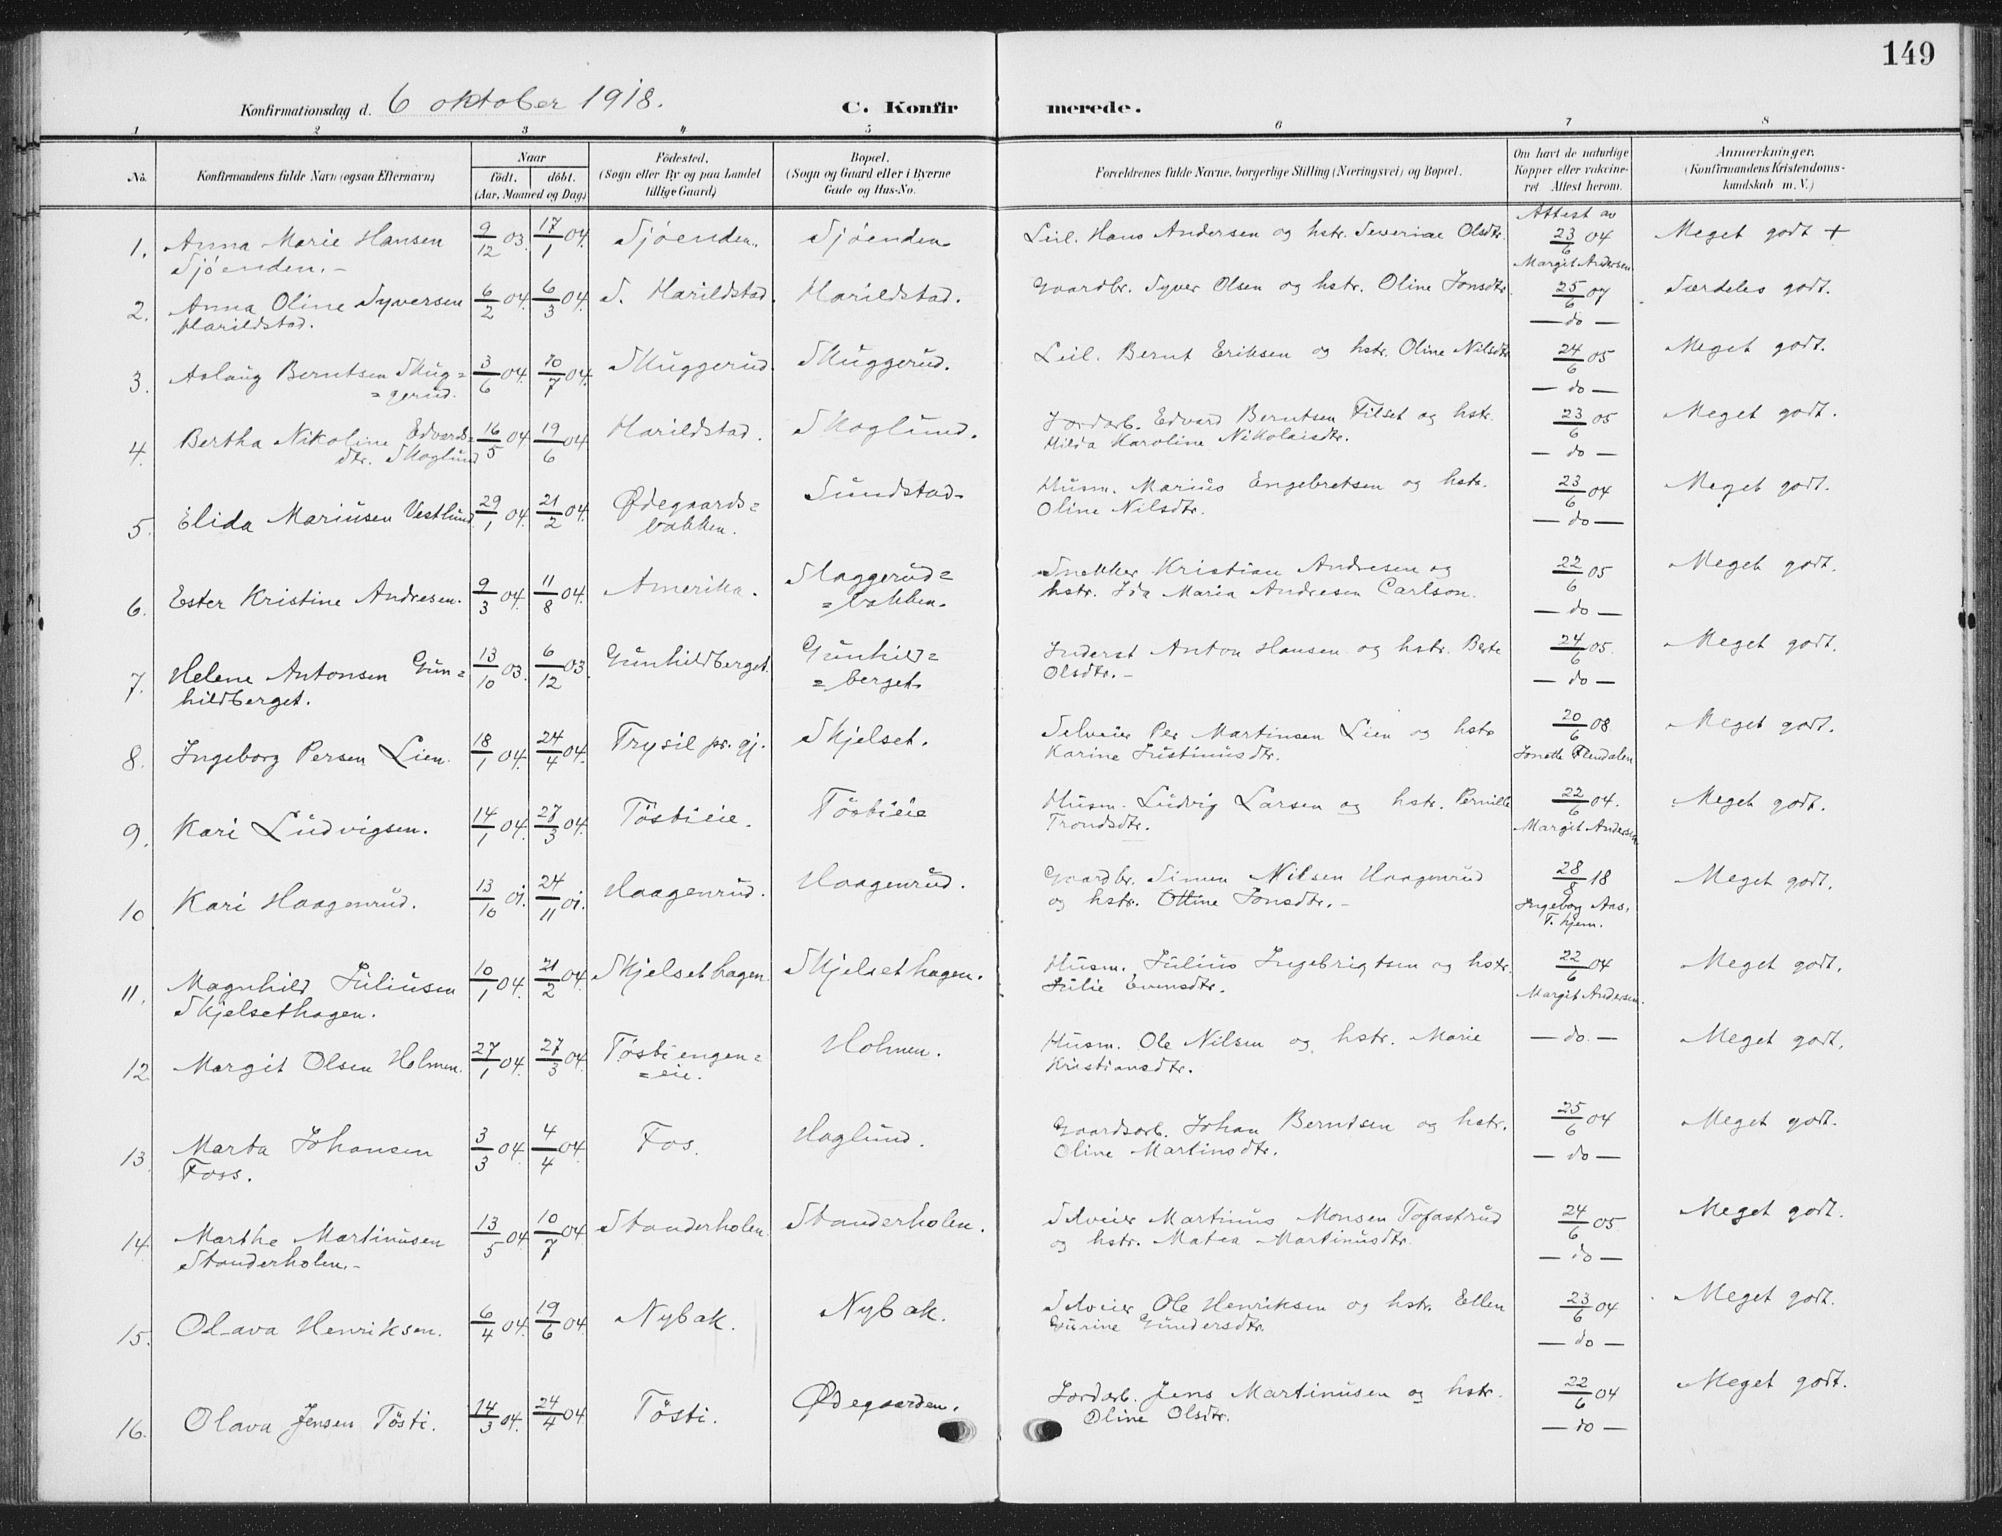 149
Konfirmationsdag d. 6 oktober 1918. C. Konfirmerede.
1 2 3 4 5 6 7 8
No. Konfirmandens fulde Navn (ogsaa Efternavn) Naar født. døbt. (Aar, Maaned og Dag) Fødested. (Sogn eller By og paa Landet tillige Gaard) Bopæl. (Sogn og Gaard eller i Byerne Gade og Hus-No. Forældrenes fulde Navne, borgerlige Stilling (Næringsvei) og Bopæl. Om havt de naturlige Kopper eller vaccineret Attest herom. Anmærkninger. (Konfirmandens Kristendomskundskab m. V.)
1. Anna Marie Hansen Sjöenden.- 9/12 03. 17/1 04. Sjöenden. Sjöenden. Leil. Hans Andersen og hstr. Severine Olsdtr. Attest av 23/6 04 Margit Andersen Meget godt +
2. Anna Oline Syversen Harildstad. 6/2 04. 6/3 04. S. Harildstad. Harildstad. Gaardbr. Syver Olsen og hstr. Oline Jonsdtr. 25/6 07 — do — Særdeles godt.
3. Aslaug Berntsen Skug= =gerud. 3/6 04. 10/7 04. Skuggerud. Skuggerud. Leil. Bernt Eriksen og hstr. Oline Nilsdtr 24/6 05 — do — Meget godt.
4. Bertha Nikoline Edvards= dtr. Skoglund 16/5 04. 19/6 04. Harildstad. Skoglund. Jordarb. Edvard Berntsen Filset og hstr. Hilda Karoline Nikolaisdtr. 23/6 05 — do — Meget godt.
5. Elida Mariusen Vestlund 29/1 04. 21/2 04. Ødegaards= bakken. Sundstad. Husm. Marius Engebretsen og hstr. Oline Nilsdtr. 23/6 04 — do — Meget godt.
6. Ester Kristine Andresen. 9/3 04. 11/8 04. Amerika. Slaggerud= =bakken. Snekker Kristian Andresen og hstr. Ida Maria Andresen Carlson. 22/6 05 — do — Meget godt.
7. Helene Antonsen Gun= hildberget. 13/10 03. 6/12 03. Gunhildberget. Gunhild= =berget. Inderst Anton Hansen og hstr. Berte Olsdtr.- 24/6 05. — do — Meget godt.
8. Ingeborg Persen Lien. 18/1 04. 24/4 04. Trysil pr. gj. Skjelset. Selveier Per Martinsen Lien og hstr Karine Justinusdtr. 20/6 08. Jonette Meget godt.
9. Kari Ludvigsen. 14/1 04. 27/3 04. Töstieie. Töstieie Husm. Ludvig Larsen og hstr. Pernille Trondsdtr. 22/6 04. Margit Andersen Meget godt.
10 Kari Haagenrud. 13/10 01. 24/11 01. Haagenrud. Haagenrud. Gaardbr. Simen Nilsen Haagenrud og hstr. Ottine Jonsdtr.- 28/8 18 Ingeborg Aas, F. hjem. Meget godt.
11. Magnhild Juliusen Skjelsethagen. 10/1 04. 21/2 04. Skjelsethagen Skjelsethagen. Husm. Julius Ingebrigtsen og hstr. Julie Evensdtr. 22/6 04 Margit Andersen. Meget godt.
12. Margit Olsen Holmen. 27/1 04. 27/3 04. Töstiengen= =eie. Holmen. Husm. Ole Nilsen og hstr. Marie Kristiansdtr. — do — Meget godt.
13. Marta Johansen Foss. 3/3 04. 4/4 04. Fos. Haglund. Gaardsarb. Johan Berntsen og hstr. Oline Martinsdtr. 25/6 04 — do — Meget godt.
14. Marthe Martinusen Standerholen.- 13/5 04. 10/7 04. Standerholen. Standerholen. Selveier Martinus Monsen Tofastrud og hstr. Matea Martinusdtr. 24/6 05. — do — Meget godt.
15. Olava Henriksen. 6/4 04. 19/6 04. Nybak. Nybak. Selveier Ole Henriksen og hstr. Ellen Gurine Gundersdtr. 23/6 04 — do — Meget godt.
16. Olava Jensen Tösti. 14/3 04. 24/4 04. Tösti. Ødegaarden. Jordarb. Jens Martinusen og hstr. Oline Olsdtr. 22/6 04 — do — Meget godt.